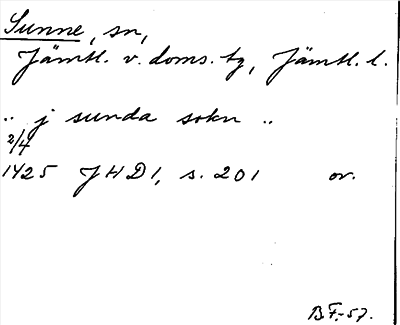 Sunne, sn,
Jämtl. v. doms. tg, Jämtl. l.
.. j sunda sokn ..
2/4
1425 JHD 1, s. 201 or.
B.F.-57.